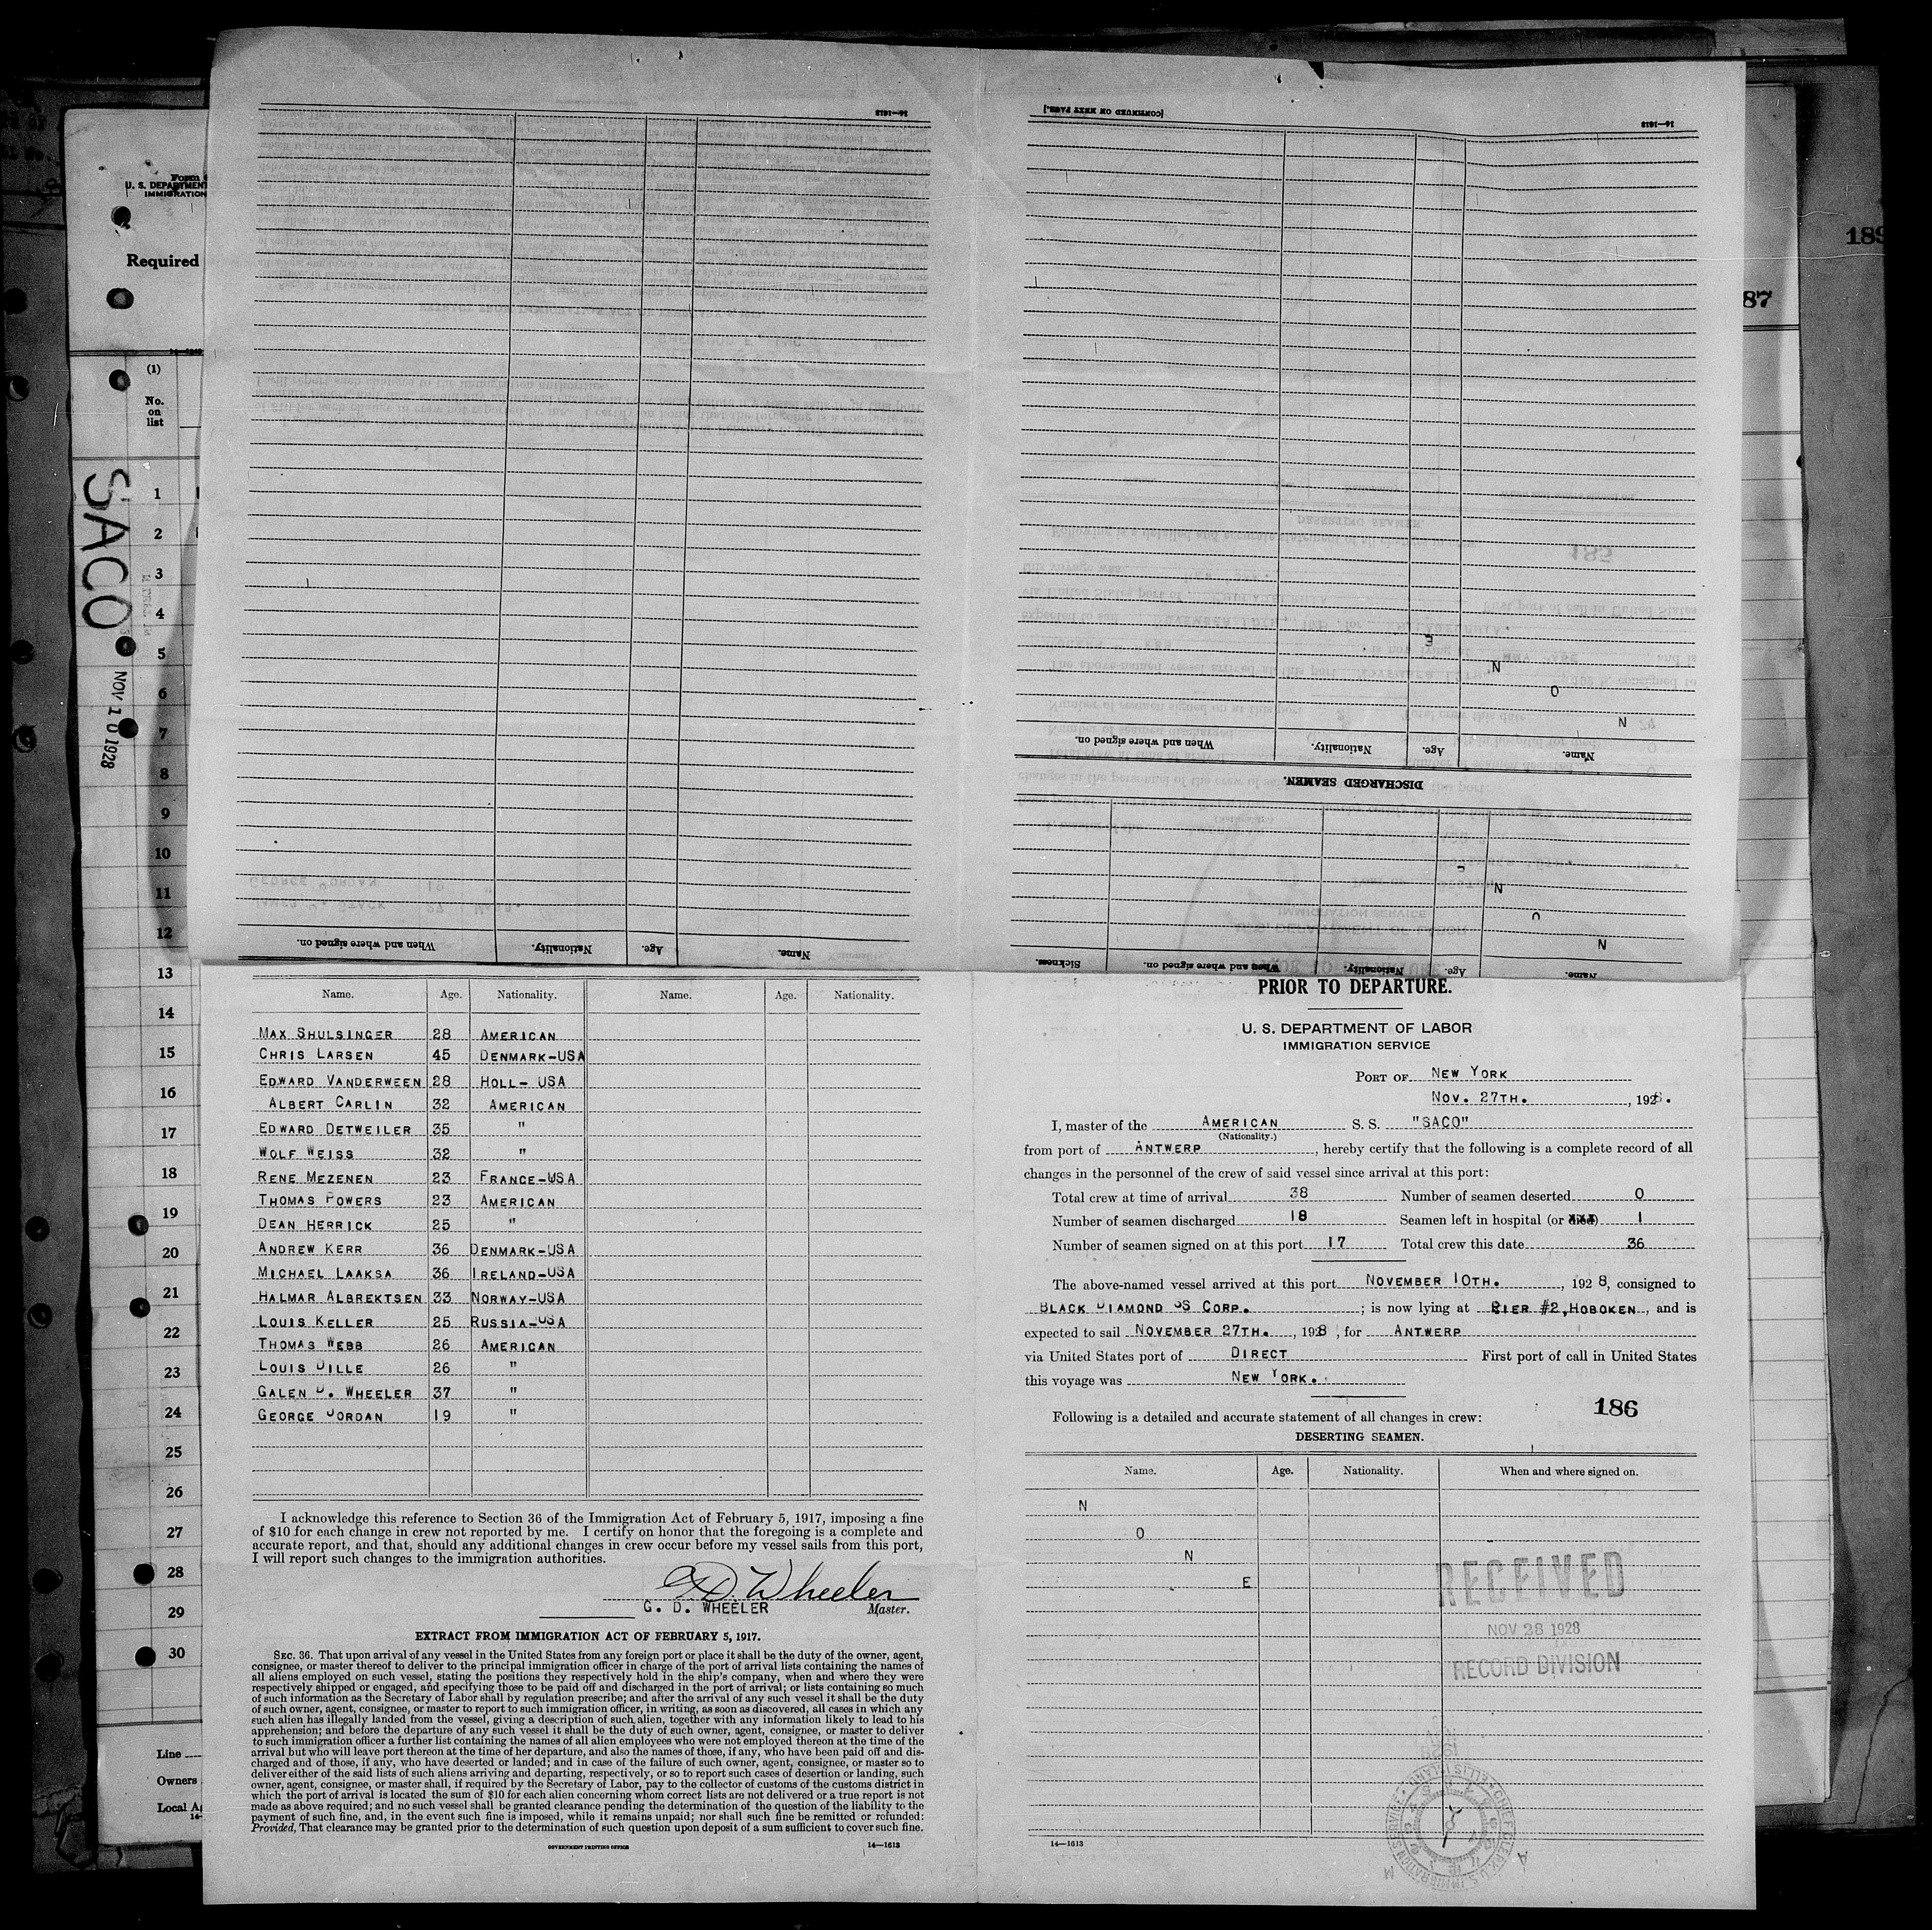 14—1613
[CONTINUED ON NEXT PAGE.]
14—1613
189
87
Form
U. S. DEPARTMENT
IMMIGRATION
Required
(1)
No.
on
list
SACO
NOV 10 1928
1
2
3
4
5
6
7
8
9
10
11
12
13
14
15
16
17
18
19
20
21
22
23
24
25
26
27
28
29
30
Line
Owners
Local
Name. Age. Nationality. When and where signed on.
DISCHARGED SEAMEN.
Name. Age. Nationality. When and where signed on.
N
O
N
E
Name. Age. Nationality. When and where signed on. Sickness.
N
O
N
Name. Age. Nationality. Name. Age. Nationality.
MAX SHULSINGER 28 AMERICAN
CHRIS LARSEN 45 DENMARK-USA
EDWARD VANDERWEEN 28 HOLL- USA
ALBERT CARLIN 32 AMERICAN
EDWARD DETWEILER 35 "
WOLF WEISS 32 "
RENE MEZENEN 23 FRANCE-USA
THOMAS POWERS 23 AMERICAN
DEAN HERRICK 25 "
ANDREW KERR 36 DENMARK-USA
MICHAEL LAAKSA 36 IRELAND-USA
HALMAR ALBREKTSEN 33 NORWAY-USA
LOUIS KELLER 25 RUSSIA-USA
THOMAS WEBB 26 AMERICAN
LOUIS DILLE 26 "
GALEN D. WHEELER 37 "
GEORGE JORDAN 19 "
I acknowledge this reference to Section 36 of the Immigration Act of February 5, 1917, imposing a fine
of $10 for each change in crew not reported by me. I certify on honor that the foregoing is a complete and
accurate report, and that, should any additional changes in crew occur before my vessel sails from this port,
I will report such changes to the immigration authorities.
G D. Wheeler
G. D. WHEELER Master.
EXTRACT FROM IMMIGRATION ACT OF FEBRUARY 5, 1917.
SEC. 36. That upon arrival of any vessel in the United States from any foreign port or place it shall be the duty of the owner, agent,
consignee, or master thereof to deliver to the principal immigration officer in charge of the port of arrival lists containing the names of
all aliens employed on such vessel, stating the positions they respectively hold in the ship's company, when and where they were
respectively shipped or engaged, and specifying those to be paid off and discharged in the port of arrival; or lists containing so much
of such information as the Secretary of Labor shall by regulation prescribe; and after the arrival of any such vessel it shall be the duty
of such owner, agent, consignee, or master to report to such immigration officer, in writing, as soon as discovered, all cases in which any
such alien has illegally landed from the vessel, giving a description of such alien, together with any information likely to lead to his
apprehension; and before the departure of any such vessel it shall be the duty of such owner, agent, consignee, or master to deliver
to such immigration officer a further list containing the names of all alien employees who were not employed thereon at the time of the
arrival but who will leave port thereon at the time of her departure, and also the names of those, if any, who have been paid off and dis-
charged and of those, if any, who have deserted or landed; and in case of the failure of such owner, agent, consignee, or master so to
deliver either of the said lists of such aliens arriving and departing, respectively, or so to report such cases of desertion or landing, such
owner, agent, consignee, or master shall, if required by the Secretary of Labor, pay to the collector of customs of the customs district in
which the port of arrival is located the sum of $10 for each alien concerning whom correct lists are not delivered or a true report is not
made as above required; and no such vessel shall be granted clearance pending the determination of the question of the liability to the
payment of such fine, and, in the event such fine is imposed, while it remains unpaid; nor shall such fine be remitted or refunded:
Provided, That clearance may be granted prior to the determination of such question upon deposit of a sum sufficient to cover such fine.
GOVERNMENT PRINTING OFFICE 14—1613
PRIOR TO DEPARTURE.
U. S. DEPARTMENT OF LABOR
IMMIGRATION SERVICE
PORT OF NEW YORK
NOV. 27TH. , 1928.
I, master of the AMERICAN S. S. "SACO"
(Nationality.)
from port of ANTWERP , hereby certify that the following is a complete record of all
changes in the personnel of the crew of said vessel since arrival at this port:
Total crew at time of arrival 38 Number of seamen deserted 0
Number of seamen discharged 18 Seamen left in hospital (or died) 1
Number of seamen signed on at this port 17 Total crew this date 36
The above-named vessel arrived at this port NOVEMBER 10TH. , 1928, consigned to
BLACK DIAMOND SS CORP. ; is now lying at PIER #2, HOBOKEN , and is
expected to sail NOVEMBER 27TH. , 1928 , for ANTWERP
via United States port of DIRECT First port of call in United States
this voyage was NEW YORK.
186
Following is a detailed and accurate statement of all changes in crew:
DESERTING SEAMEN.
Name. Age. Nationality. When and where signed on.
N
O
N
E
RECEIVED
NOV 28 1928
RECORD DIVISION
14—1613